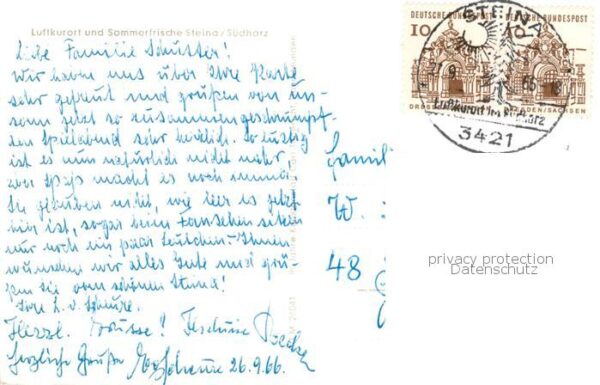 Luftkurort und Sommerfrische Steina/Südharz
Liebe Familie Schuster!
Wir haben uns über Ihre Karte
sehr gefreut und grüßen von un-
serm jetzt so zusammengeschrumpf-
ten Spielabend sehr herzlich. So lustig
ist es nun natürlich nicht mehr,
aber Spaß macht es noch immer.
Sie glauben nicht, wie leer es jetzt
hier ist, sogar beim Fernsehen sitzen
nur noch ein paar Leutchen. Ihnen
wünschen wir alles Gute und grü-
ßen Sie vom schönen Strand!
Herzl. Grüsse!
Herzliche Grüße 26.9.66
Famili
W.
48
DEUTSCHE BUNDESPOST DEUTSCHE BUNDESPOST
10 10
DRESDEN/SACHSEN
STEINA
Luftkurort im Südharz
3421
privacy protection
Datenschutz